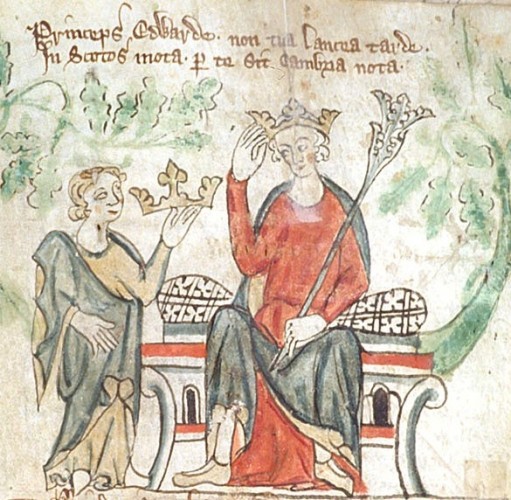 Princeps Edwarde. non tua lancea tarde.
In Scotos mota. p te sit cambria nota.